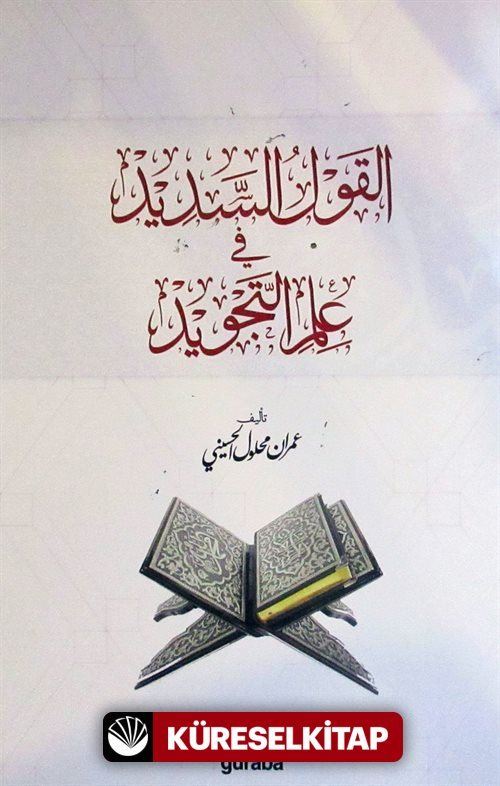 القَولُ السَّدِيد
في
عِلمِ التَّجوِيد
تأليف
عمران محلول الحسيني
KÜRESELKİTAP
guraba